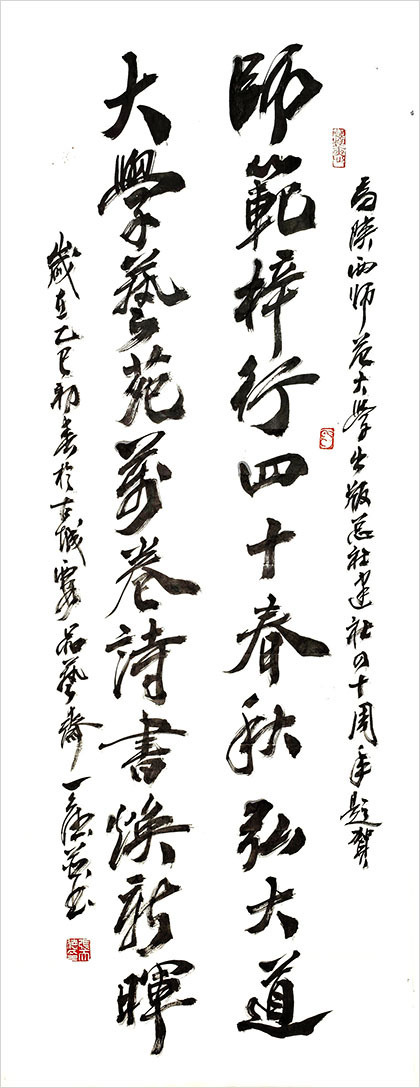 为陕西师范大学出版总社建社四十周年题贺
師範梓行四十春秋弘大道
大學藝苑萬卷詩書煥新暉
歲在乙巳初春於古城
品藝齋